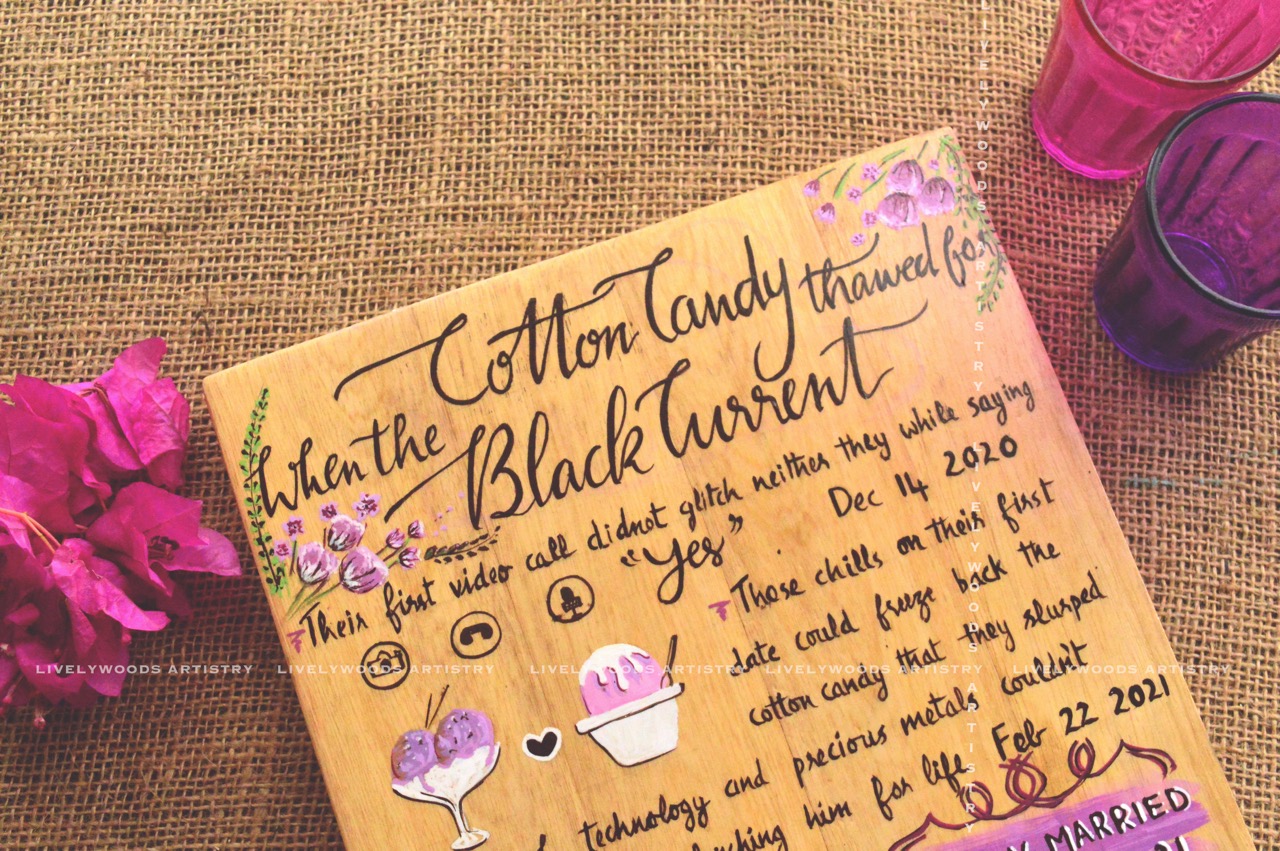 When the Cotton Candy thawed for
Black Current
Their first video call didnot glitch neither they while saying
“Yes”
Dec 14 2020
Those chills on their first
date could freeze back the
cotton candy that they slurped
technology and precious metals couldn't
him for life
Feb 22 2021
MARRIED
LIVELYWOODS ARTISTRY LIVELYWOODS ARTISTRY LIVELYWOODS ARTISTRY LIVELYWOODS ARTISTRY LIVELYWOODS ARTISTRY
LIVELYWOODS ARTISTRY
LIVELYWOODS ARTISTRY